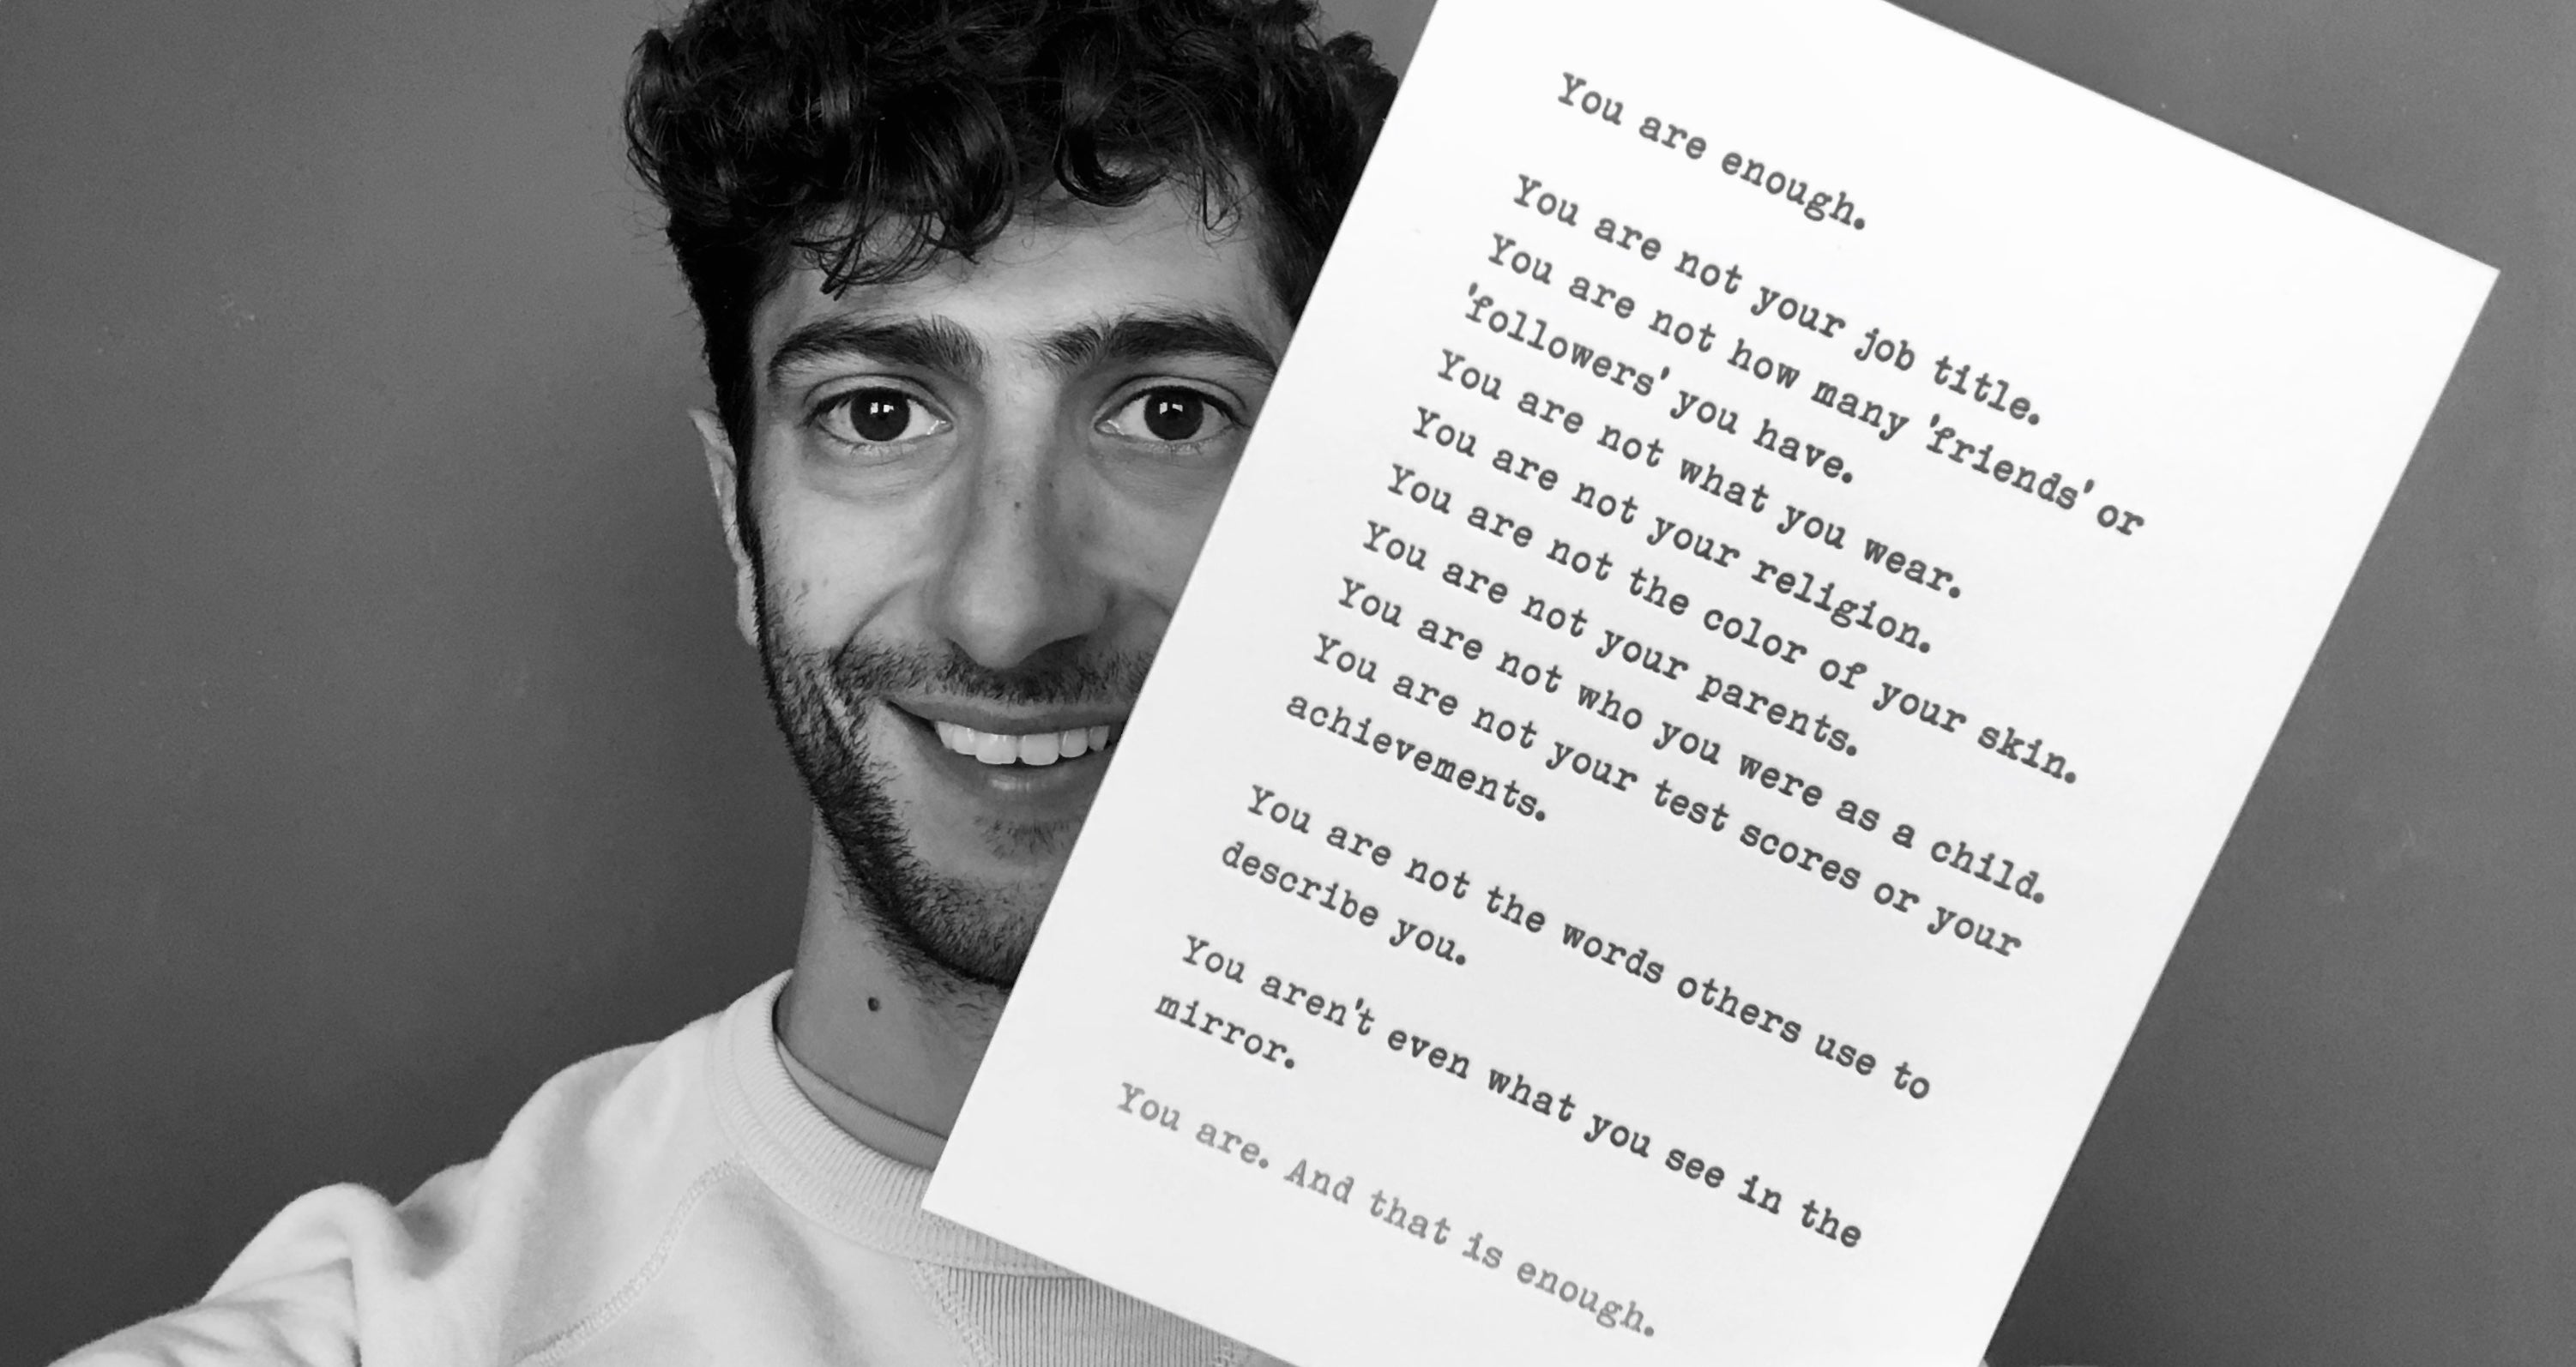 You are enough.
You are not your job title.
You are not how many 'friends' or
'followers' you have.
You are not what you wear.
You are not your religion.
You are not the color of your skin.
You are not your parents.
You are not who you were as a child.
You are not your test scores or your
achievements.
You are not the words others use to
describe you.
You aren't even what you see in the
mirror.
You are. And that is enough.